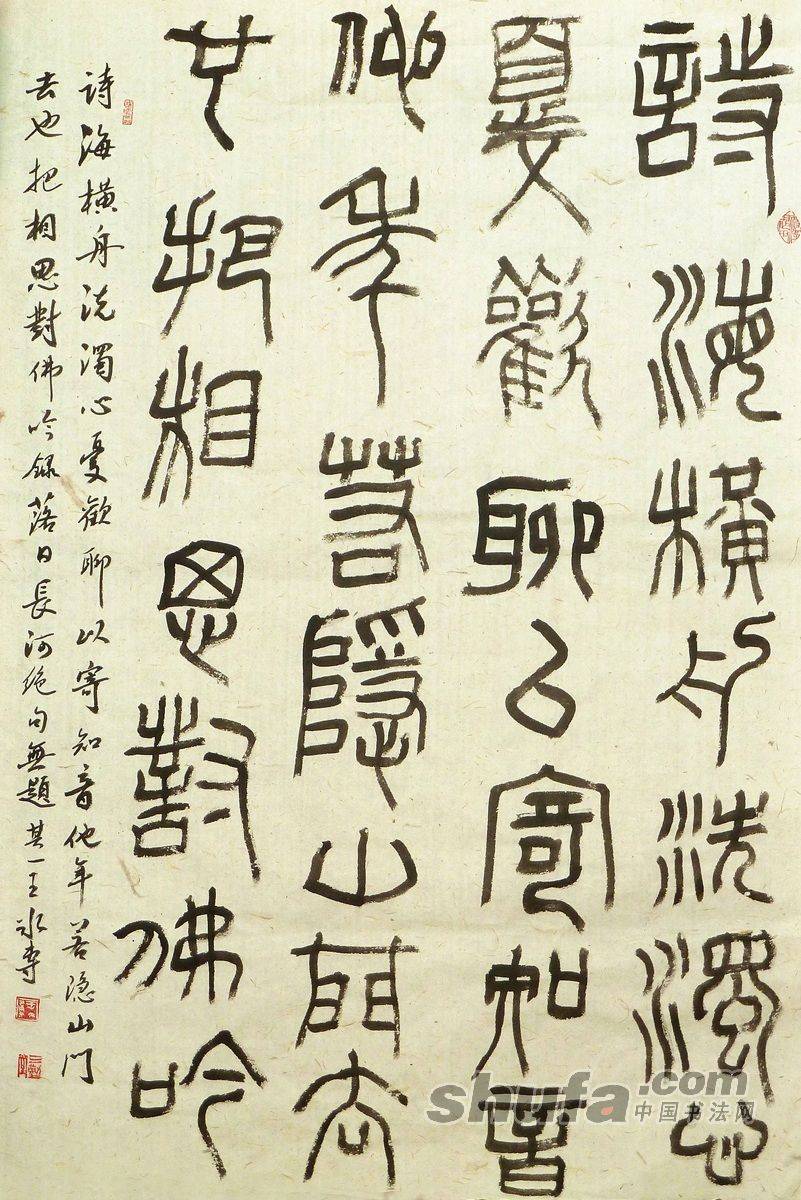 詩海橫舟洗濁心
憂歡聊以寄知音
他年若隱山門去
也把相思對佛吟
詩海橫舟洗濁心憂歡聊以寄知音他年若隐山门
去也把相思對佛吟錄落日長河绝句無題其一王冰專
shufa.com
中国书法网